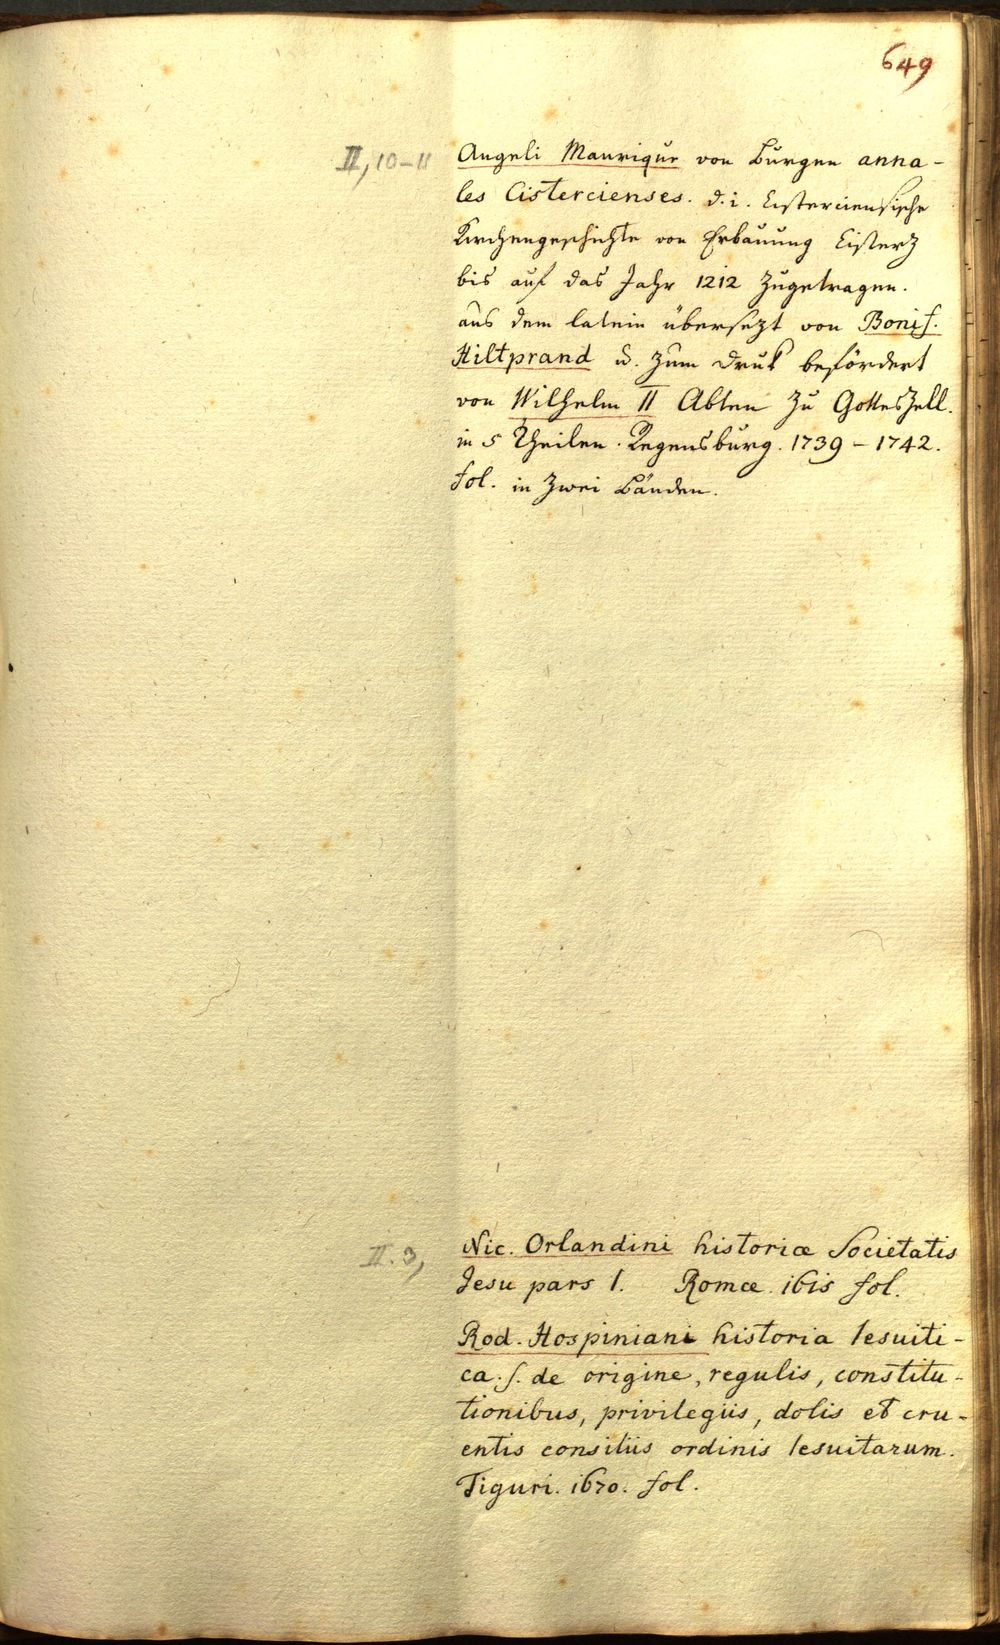 649
II, 10-11
Angeli Manrique von Burgen anna-
les Cistercienses. d. i. Cisterciensische
Kirchengeschichte von Erbauung Cisterz
bis auf das Jahr 1212 zugetragen.
aus dem latein übersezt von Bonif.
Hiltprand u. zum Druk befördert
von Wilhelm II Abten zu Gotteszell.
in 5 Theilen. Regensburg. 1739 - 1742.
fol. in zwei Bänden.
II. 3,
Nic. Orlandini historiæ Societatis
Jesu pars 1. Romæ. 1615 fol.
Rod. Hospiniani historia Iesuiti-
ca. s. de origine, regulis, constitu-
tionibus, privilegiis, dolis et cru-
entis consiliis ordinis Iesuitarum.
Tiguri. 1670. fol.